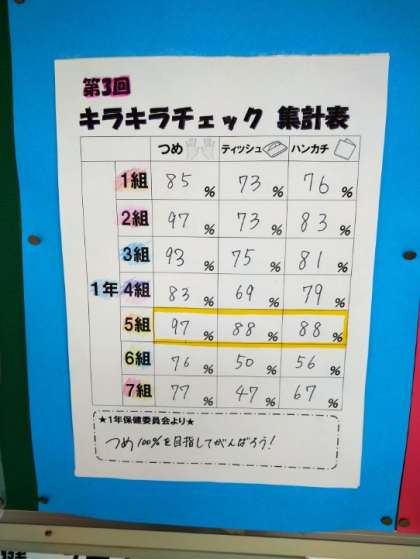 第3回
キラキラチェック 集計表
つめ ティッシュ ハンカチ
1年
1組 85% 73% 76%
2組 97% 73% 83%
3組 93% 75% 81%
4組 83% 69% 79%
5組 97% 88% 88%
6組 76% 50% 56%
7組 77% 47% 67%
★1年保健委員会より★
つめ100%を目指してがんばろう!